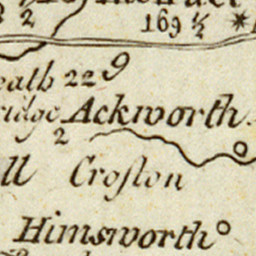 2 169 1/2 *
eath 22 9
ridge Ackworth
2
ll Croſton
Himsworth